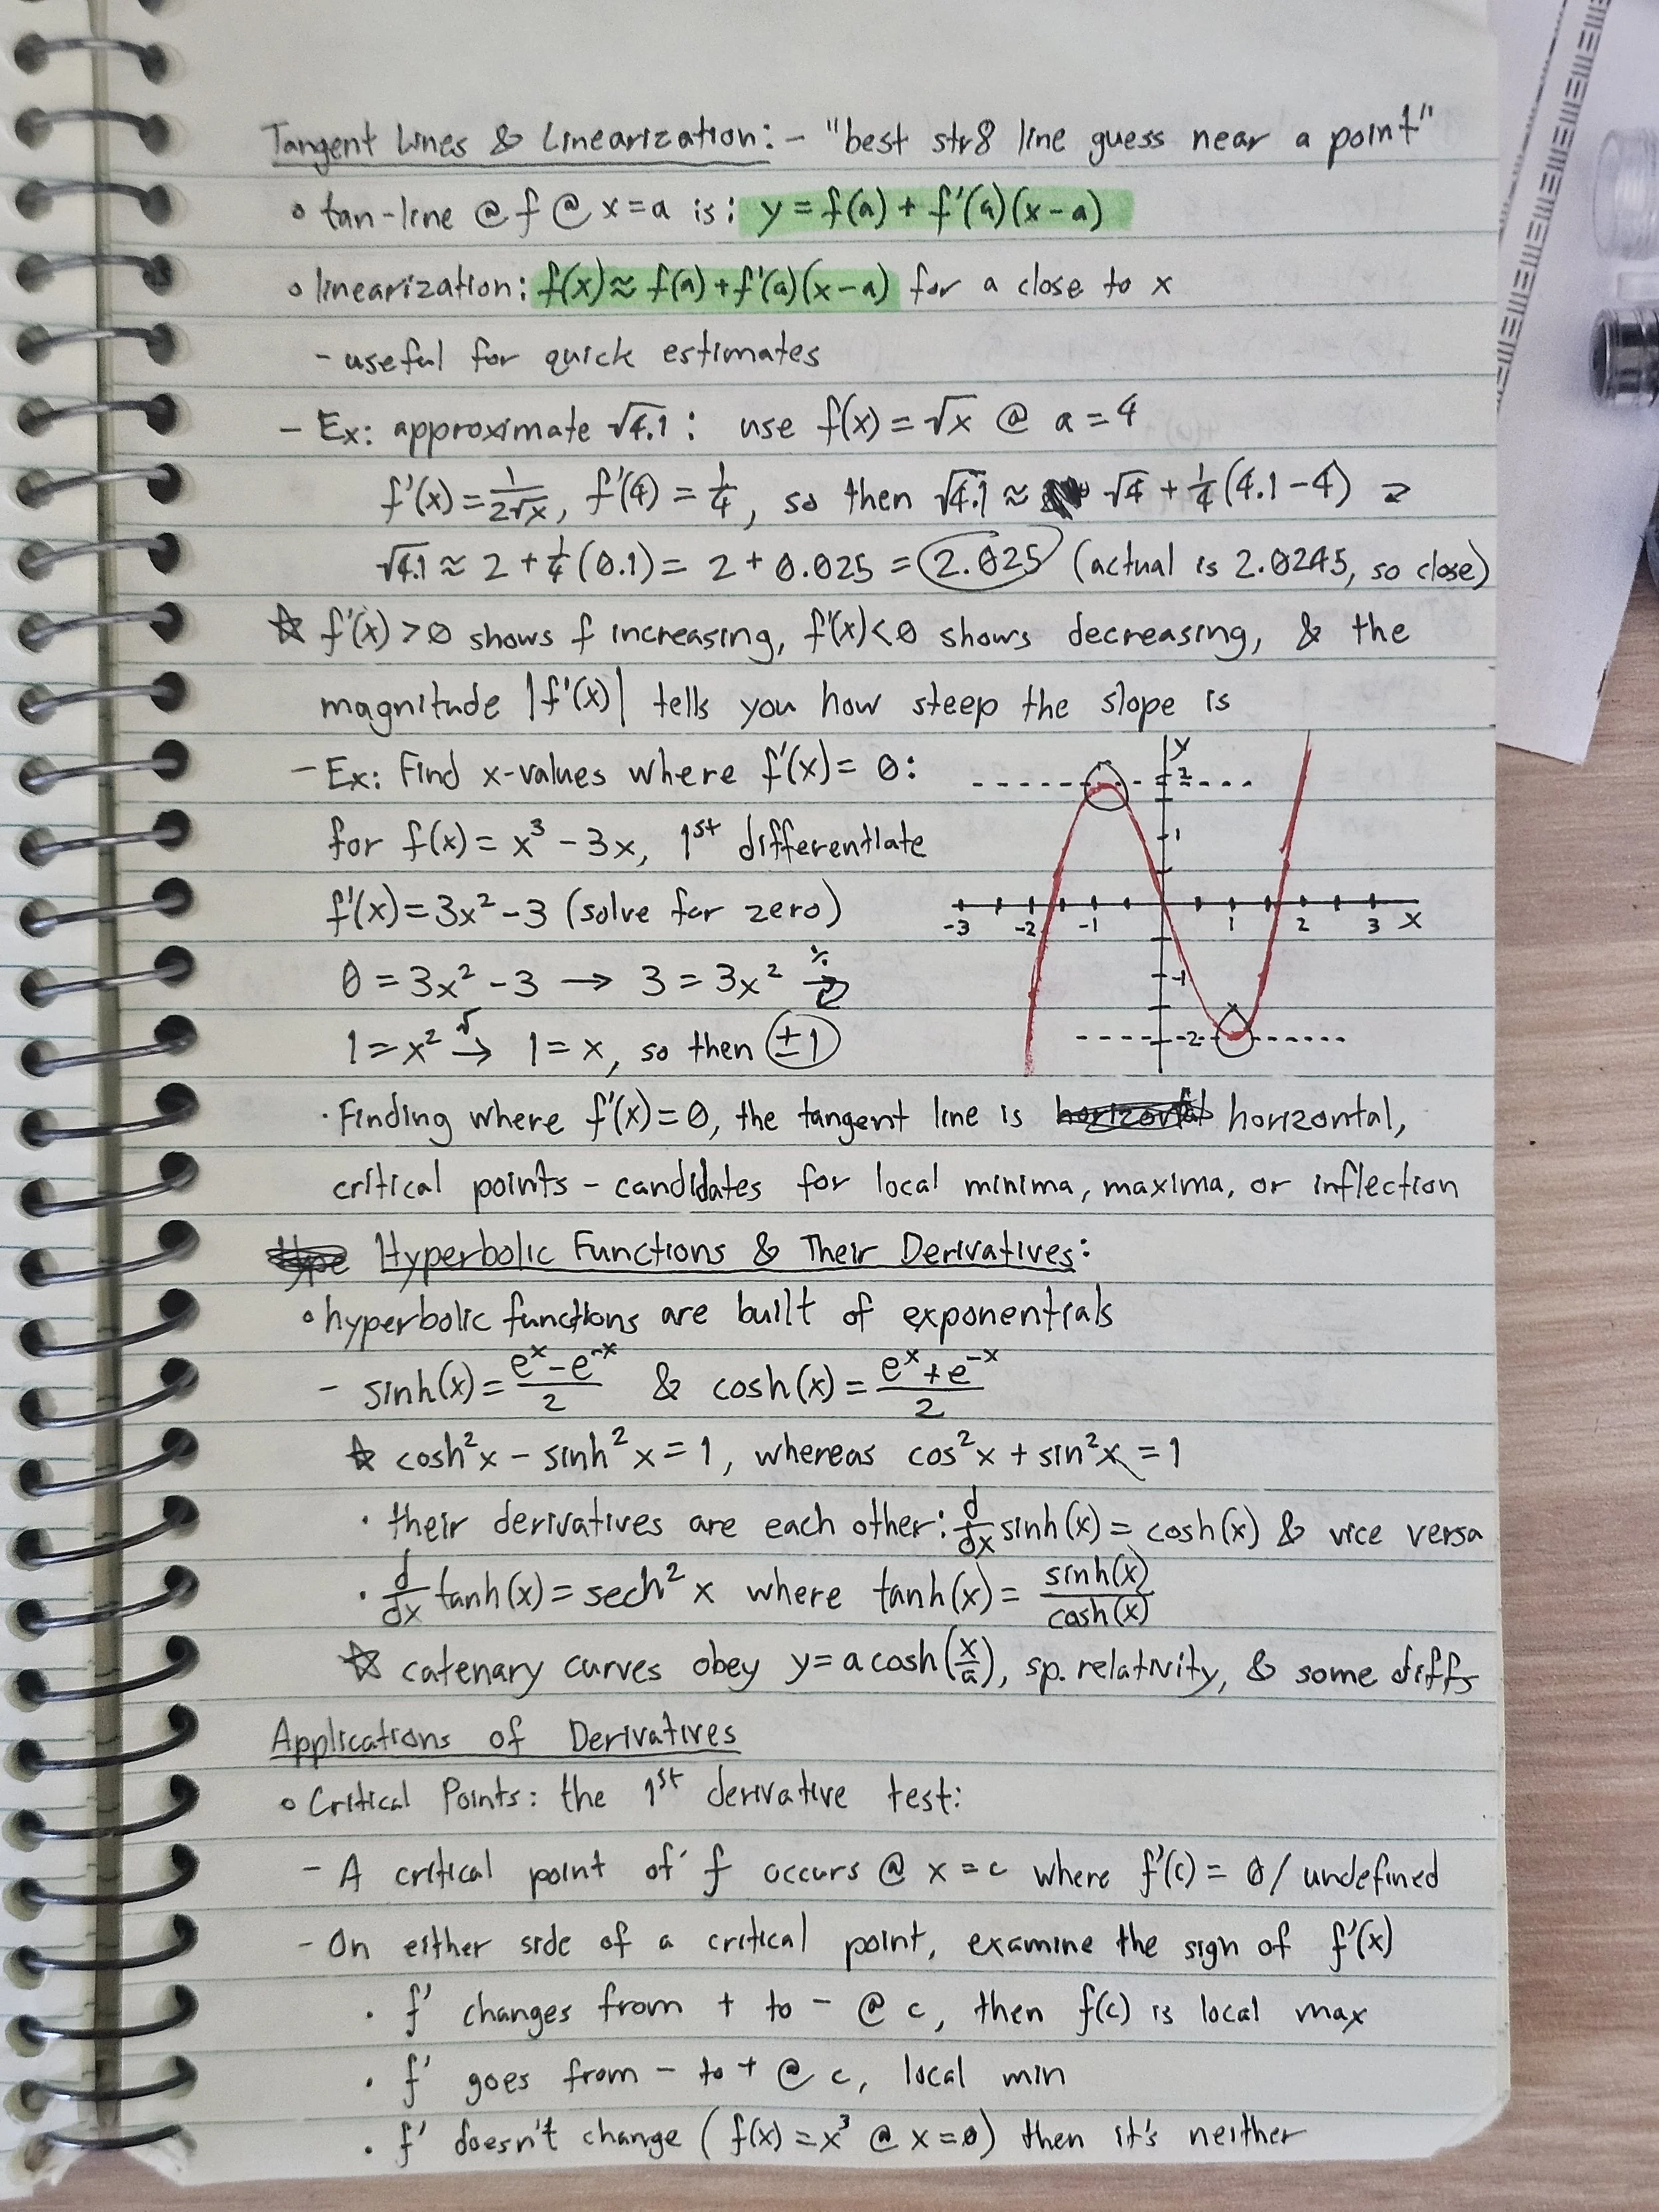 Tangent Lines & Linearization: - "best str8 line guess near a point"
◦ tan-line @ f @ x=a is: y = f(a) + f'(a)(x-a)
◦ linearization: f(x) ≈ f(a) + f'(a)(x-a) for a close to x
- useful for quick estimates
- Ex: approximate √4.1 : use f(x) = √x @ a = 4
f'(x) = 1/2√x, f'(4) = 1/4, so then √4.1 ≈ √4 + 1/4(4.1-4) ⤶
√4.1 ≈ 2 + 1/4(0.1) = 2 + 0.025 = 2.025 (actual is 2.0245, so close)
☆ f'(x) > 0 shows f increasing, f'(x) < 0 shows decreasing, & the
magnitude |f'(x)| tells you how steep the slope is
- Ex: Find x-values where f'(x) = 0:
for f(x) = x³ - 3x, 1st differentiate
f'(x) = 3x² - 3 (solve for zero)
0 = 3x² - 3 → 3 = 3x² ÷→ ⤶
1 = x² √→ 1 = x, so then ±1
y
2
1
-3 -2 -1 1 2 3 x
-1
-2
· Finding where f'(x) = 0, the tangent line is horizontal horizontal,
critical points - candidates for local minima, maxima, or inflection
Hype Hyperbolic Functions & Their Derivatives:
◦ hyperbolic functions are built of exponentials
- sinh(x) = eˣ - e⁻ˣ/2 & cosh(x) = eˣ + e⁻ˣ/2
☆ cosh²x - sinh²x = 1, whereas cos²x + sin²x = 1
· their derivatives are each other: d/dx sinh(x) = cosh(x) & vice versa
· d/dx tanh(x) = sech²x where tanh(x) = sinh(x)/cosh(x)
☆ catenary curves obey y = a cosh(x/a), sp. relativity, & some diffs
Applications of Derivatives
◦ Critical Points: the 1st derivative test:
- A critical point of f occurs @ x = c where f'(c) = 0/ undefined
- On either side of a critical point, examine the sign of f'(x)
· f' changes from + to - @ c, then f(c) is local max
· f' goes from - to + @ c, local min
· f' doesn't change (f(x) = x³ @ x=0) then it's neither